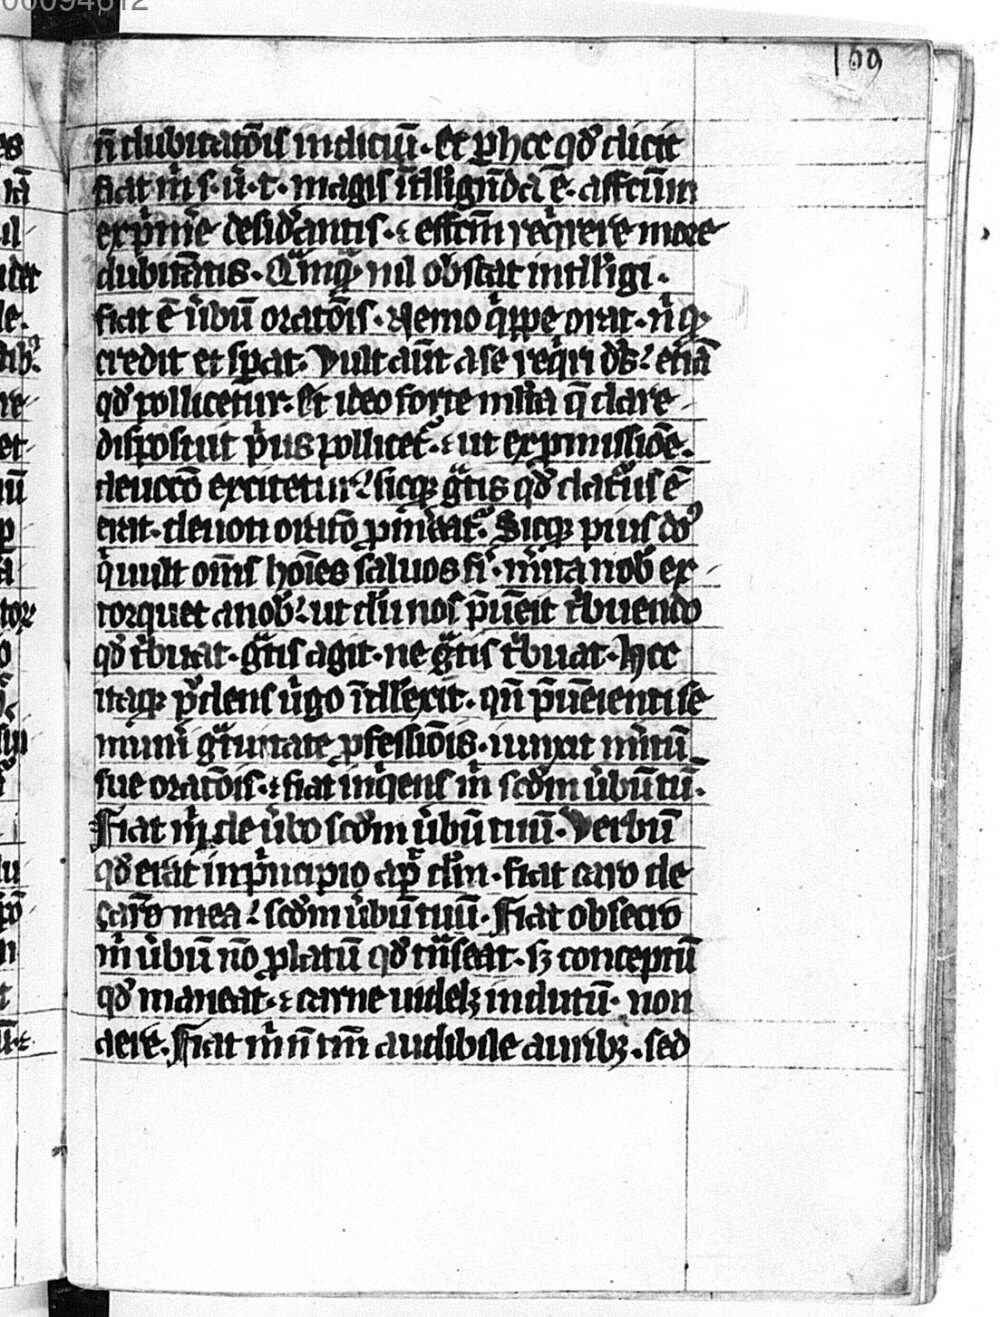 00094612
169
n̄ dubitatōis indiciū · Et p̄ hec qd̓ dicit
fiat m̓ s · u̓ · t · magis ītllignda ē · affectūm
exp̓m̄e desid̓antis · ⁊ effctm̄ req̓rere more
dubitātis · Qͣmq̓ nil obstat intlligi ·
fiat ē u̓bū oratōis · Nemo q̓ppe orat · n̓ qͥ
credit et sp̓at · Vult aūt a se req̓ri ds̄ ? etiā
qd̓ pollicetur · Et ideo forte multa q̄ dare
disposuit p̓us pollicet᷑ · ⁊ ut ex p̓missiōe
deuocō excitetur ? sicqꝫ gͣtis qd̓ datur᷑ ē
erat · deuota oratō p̓m̓eat᷑ · Sicqꝫ pius ds̓
q̓ uult om̄s hoīes saluos fi̓ · m̓ita nob̓ ex
torquet a nob̓ ? ut dū nos p̄uēit t̓buendo
qd̓ t̓buat · gͣtis agit · ne gͣtis t̓buat · Hec
itaqꝫ p̓dens u̓go ītllexit · qn̄ p̄uēienti se
mun̓i gͣtuitate ꝓfessiōis · iunxit m̓itū
sue oratōis · ⁊ fiat inq̓ens m̓ scdm̄ u̓bū tū ·
Fiat m̓ de u̓bo scdm̄ u̓bū tuū · Verbū
qd̓ erat in p̓ncipio ap̓ dm̄ · fiat caro de
carne mea ? scdm̄ u̓bū tuū · Fiat obsecro
m̓ u̓bū nō ꝓlatū qd̓ tn̄seat · sꝫ conceptū
qd̓ maneat · ⁊ carne uidelꝫ indutū · non
aere · Fiat m̓ n̄ tm̄ audibile auribꝫ · sed